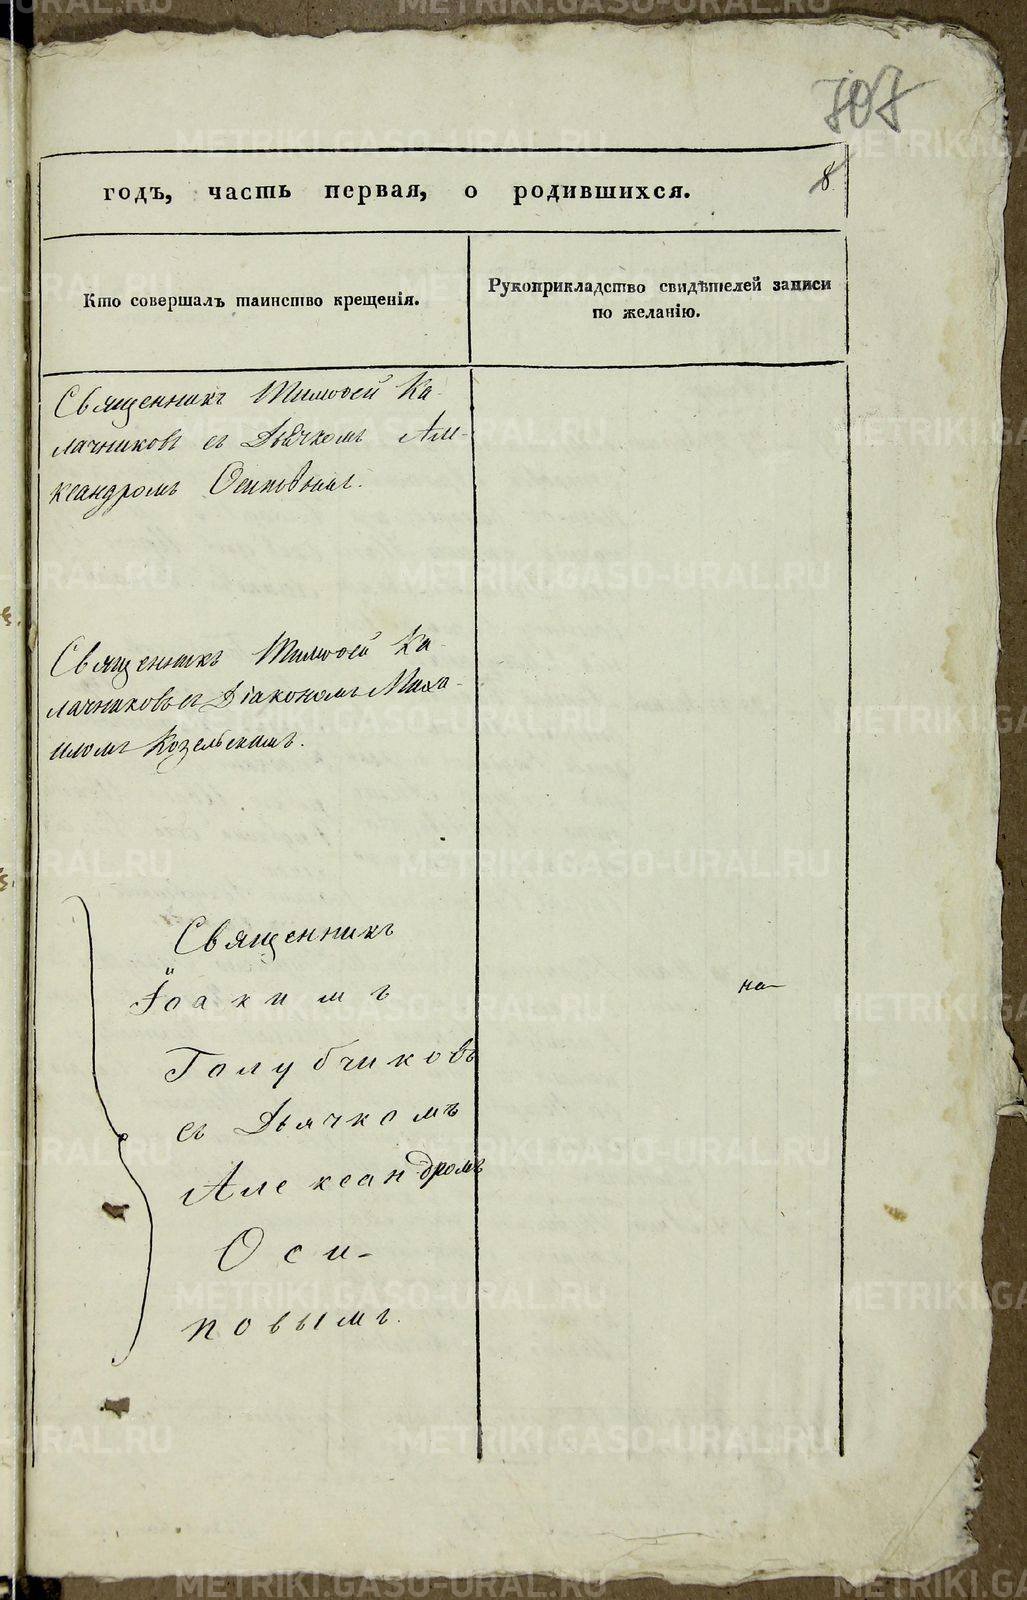 707
годъ, часть первая, о родившихся.
8
Кто совершалъ таинство крещенія.
Рукоприкладство свидѣтелей записи
по желанію.
Священникъ Тимоѳей Ка-
лачниковъ съ Дьячкомъ Але-
ксандромъ Осиповымъ.
Священникъ Тимоѳей Ка-
лачниковъ съ Діакономъ Миха-
иломъ Козельскимъ.
Священникъ
Іоакимъ
Голубчиковъ
съ Дьячкомъ
Александромъ
Оси-
повымъ.
на
METRIKI.GASO-URAL.RU